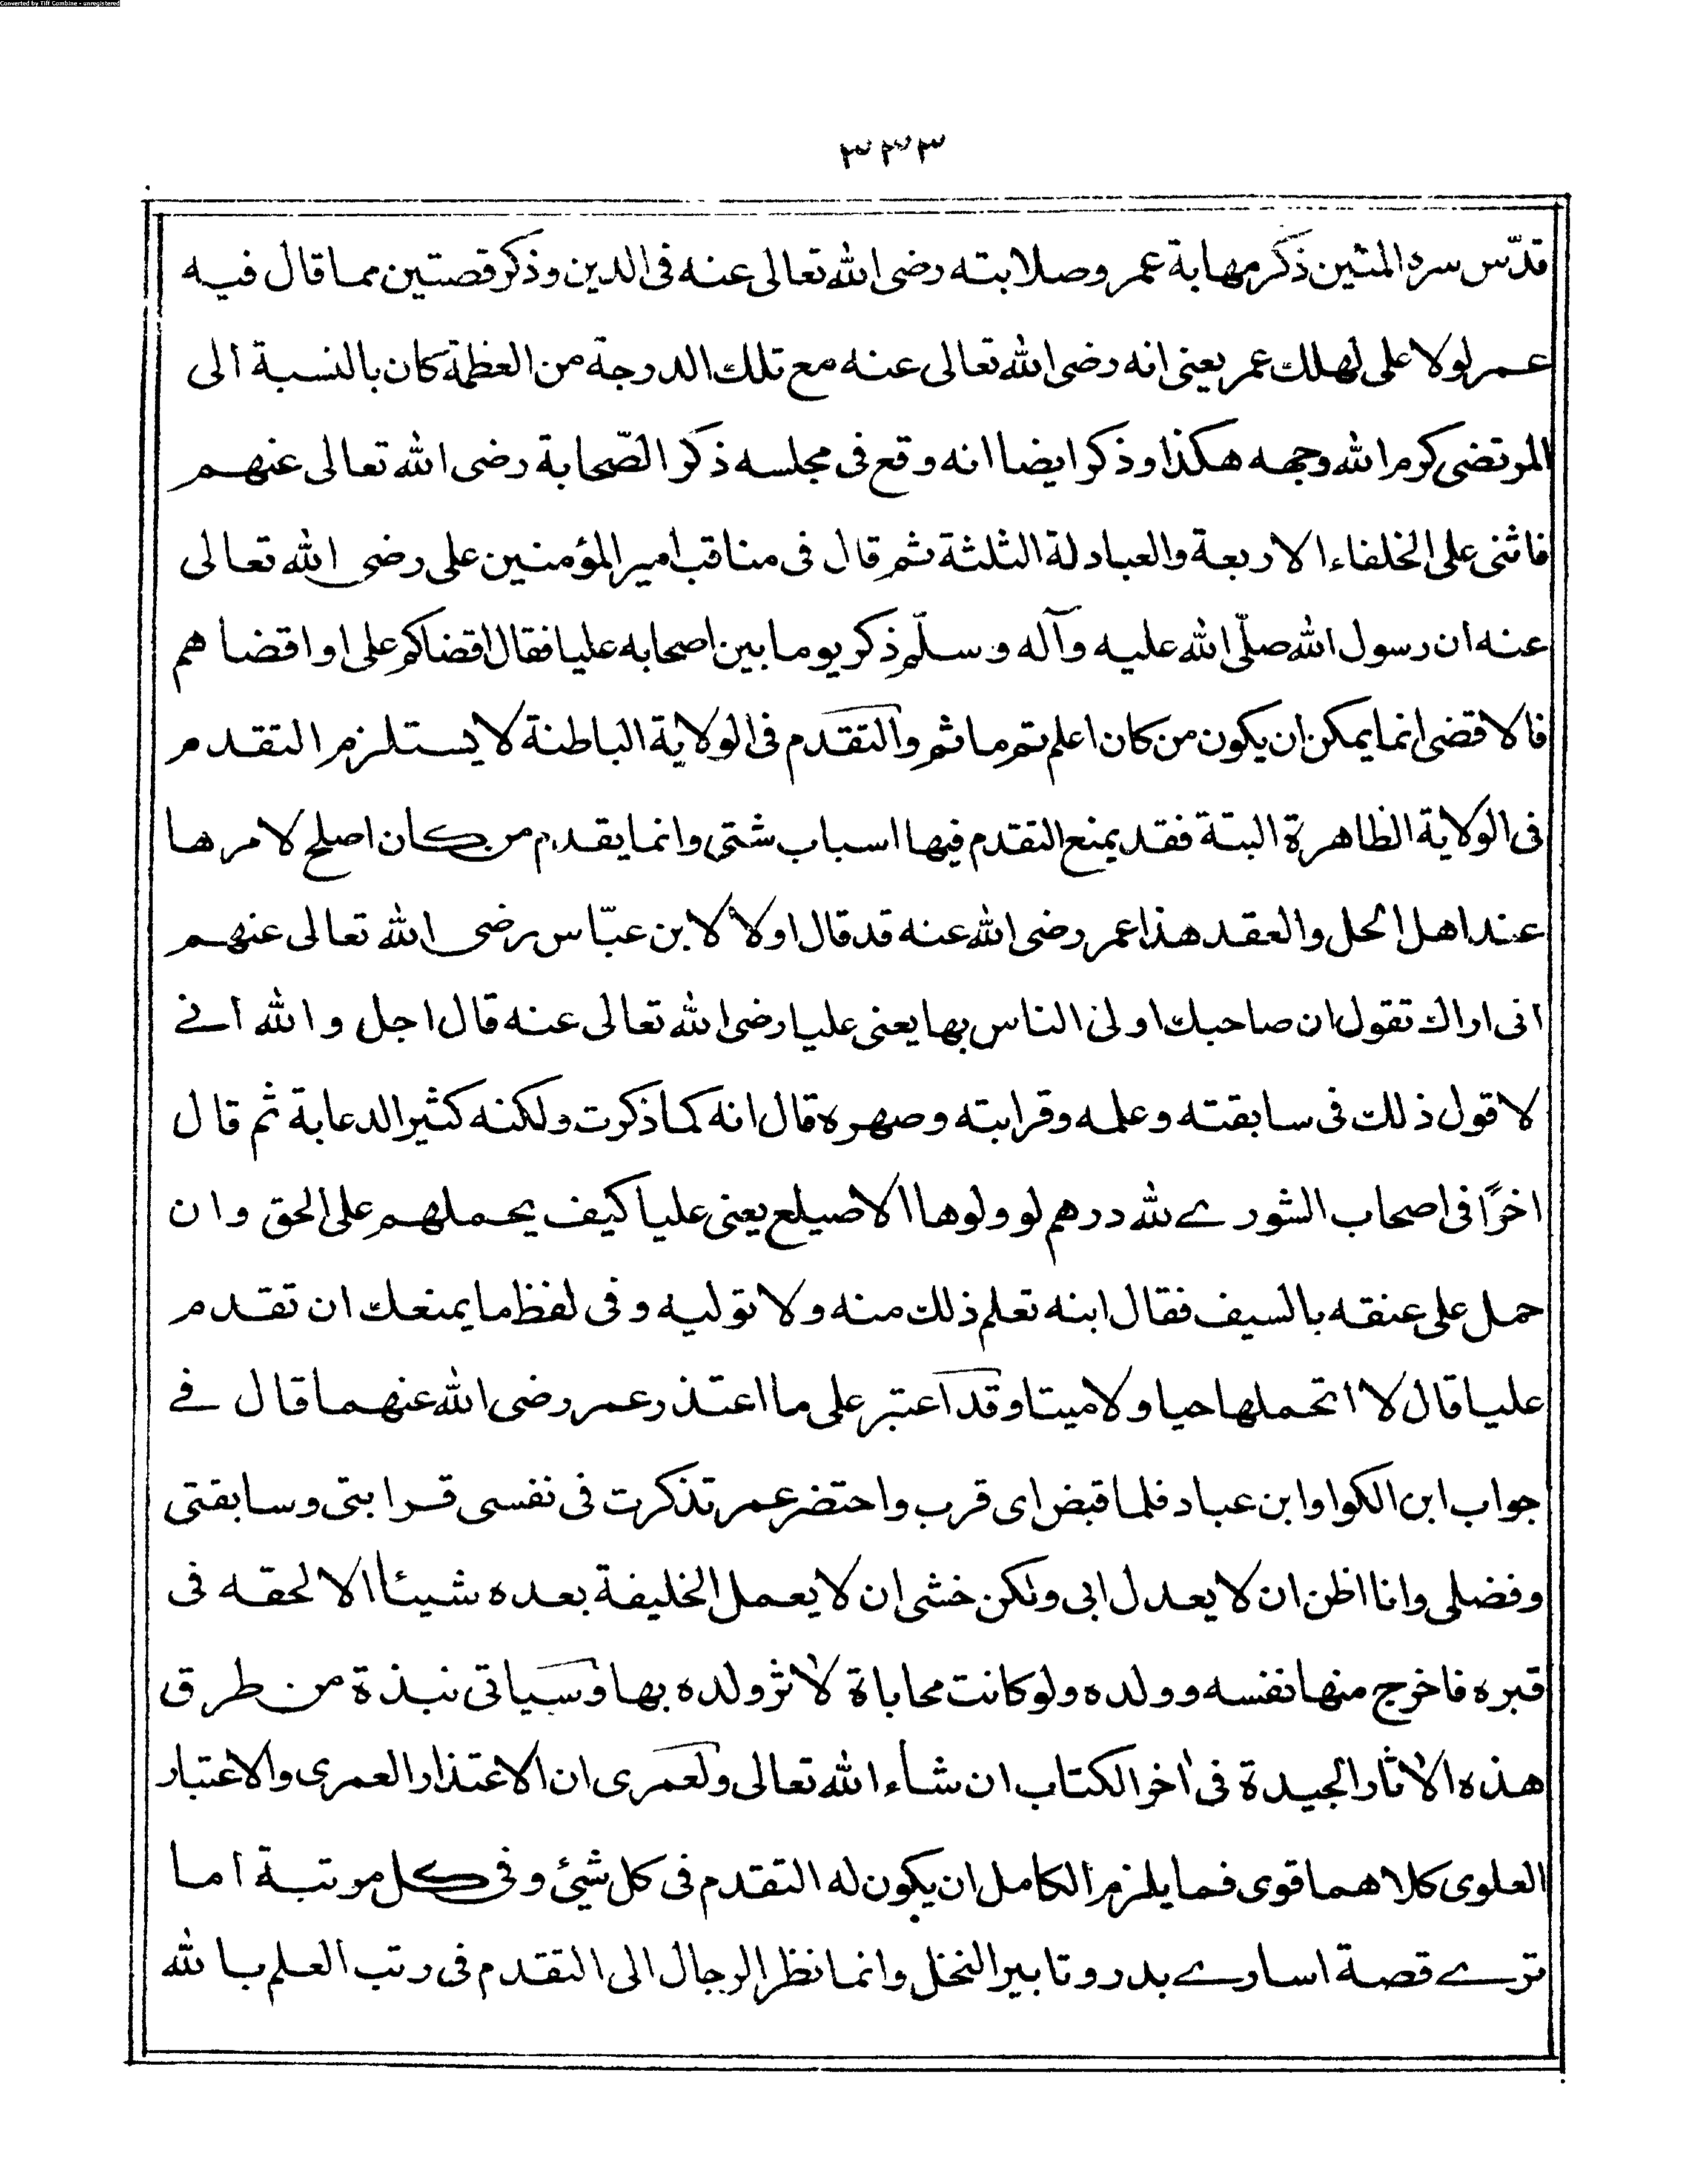 Converted by Tiff Combine - unregistered
٣٣٣
قدّس سره المثين ذكر مهابة عمر وصلابته رضى الله تعالى عنه فى الدين وذكر قصتين مما قال فيه
عمر لولا على لهلك عمر يعنى انه رضى الله تعالى عنه مع تلك الدرجة من العظمة كان بالنسبة الى
المرتضى كرم الله وجهه هكذا وذكر ايضا انه وقع فى مجلسه ذكر الصّحابة رضى الله تعالى عنهم
فاثنى على الخلفاء الاربعة والعبادلة الثلثة ثم قال فى مناقب امير المؤمنين على رضى الله تعالى
عنه ان رسول الله صلّى الله عليه وآله وسلّم ذكر يوما بين اصحابه عليا فقال اقضاكم على او اقضاهم
فالاقضى انما يمكن ان يكون من كان اعلم تم ما ثم والتقدم فى الولاية الباطنة لا يستلزم التقدم
فى الولاية الظاهرة البتة فقد يمنع التقدم فيها اسباب شتى وانما يقدم من كان اصلح لامرها
عند اهل الحل والعقد هذا عمر رضى الله عنه قد قال اولا لابن عبّاس رضى الله تعالى عنهم
انى اراك تقول ان صاحبك اولى الناس بها يعنى عليا رضى الله تعالى عنه قال اجل والله انے
لاقول ذلك فى سابقته وعلمه وقرابته وصهره قال انه كما ذكرت ولكنه كثير الدعابة ثم قال
اخرًا فى اصحاب الشورے لله درهم لو ولوها الاصيلع يعنى عليا كيف يحملهم على الحق وان
حمل على عنقه بالسيف فقال ابنه تعلم ذلك منه ولا توليه وفى لفظ ما يمنعك ان تقدم
عليا قال لا اتحملها حيا ولا ميتا وقد اعتبر على ما اعتذر عمر رضى الله عنهما قال فے
جواب ابن الكوا وابن عباد فلما قبض اى قرب واحتضر عمر تذكرت فى نفسى قرابتى وسابقتى
وفضلى وانا اظن ان لا يعدل ابى ولكن خشى ان لا يعمل الخليفة بعده شيئا الا لحقه فى
قبره فاخرج منها نفسه وولده ولو كانت محاباة لاثر ولده بها وسياتى نبذة من طرق
هذه الاٰثار الجيدة فى اٰخر الكتاب ان شاء الله تعالى ولعمرى ان الاعتذار العمرى والاعتبار
العلوى كلاهما قوى فما يلزم الكامل ان يكون له التقدم فى كل شئ وفى كل مرتبة اما
ترے قصة اسارے بدر وتابير النخل وانما نظر الرجال الى التقدم فى رتب العلم بالله